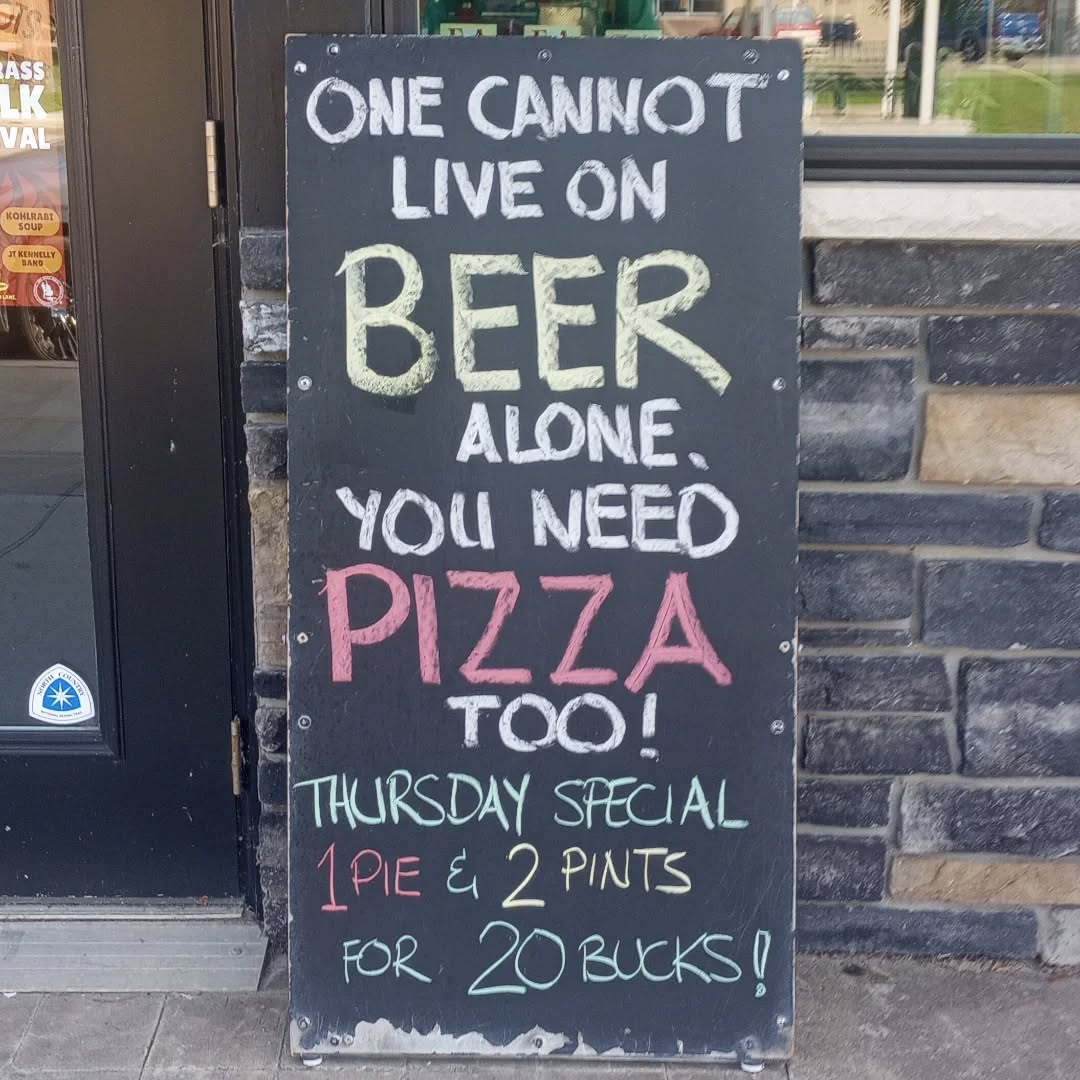 ONE CANNOT
LIVE ON
BEER
ALONE.
YOU NEED
PIZZA
TOO!
THURSDAY SPECIAL
1 PIE & 2 PINTS
FOR 20 BUCKS!
RASS
LK
VAL
KOHLRABI
SOUP
JT KENNELLY
BAND
NORTH COUNTRY